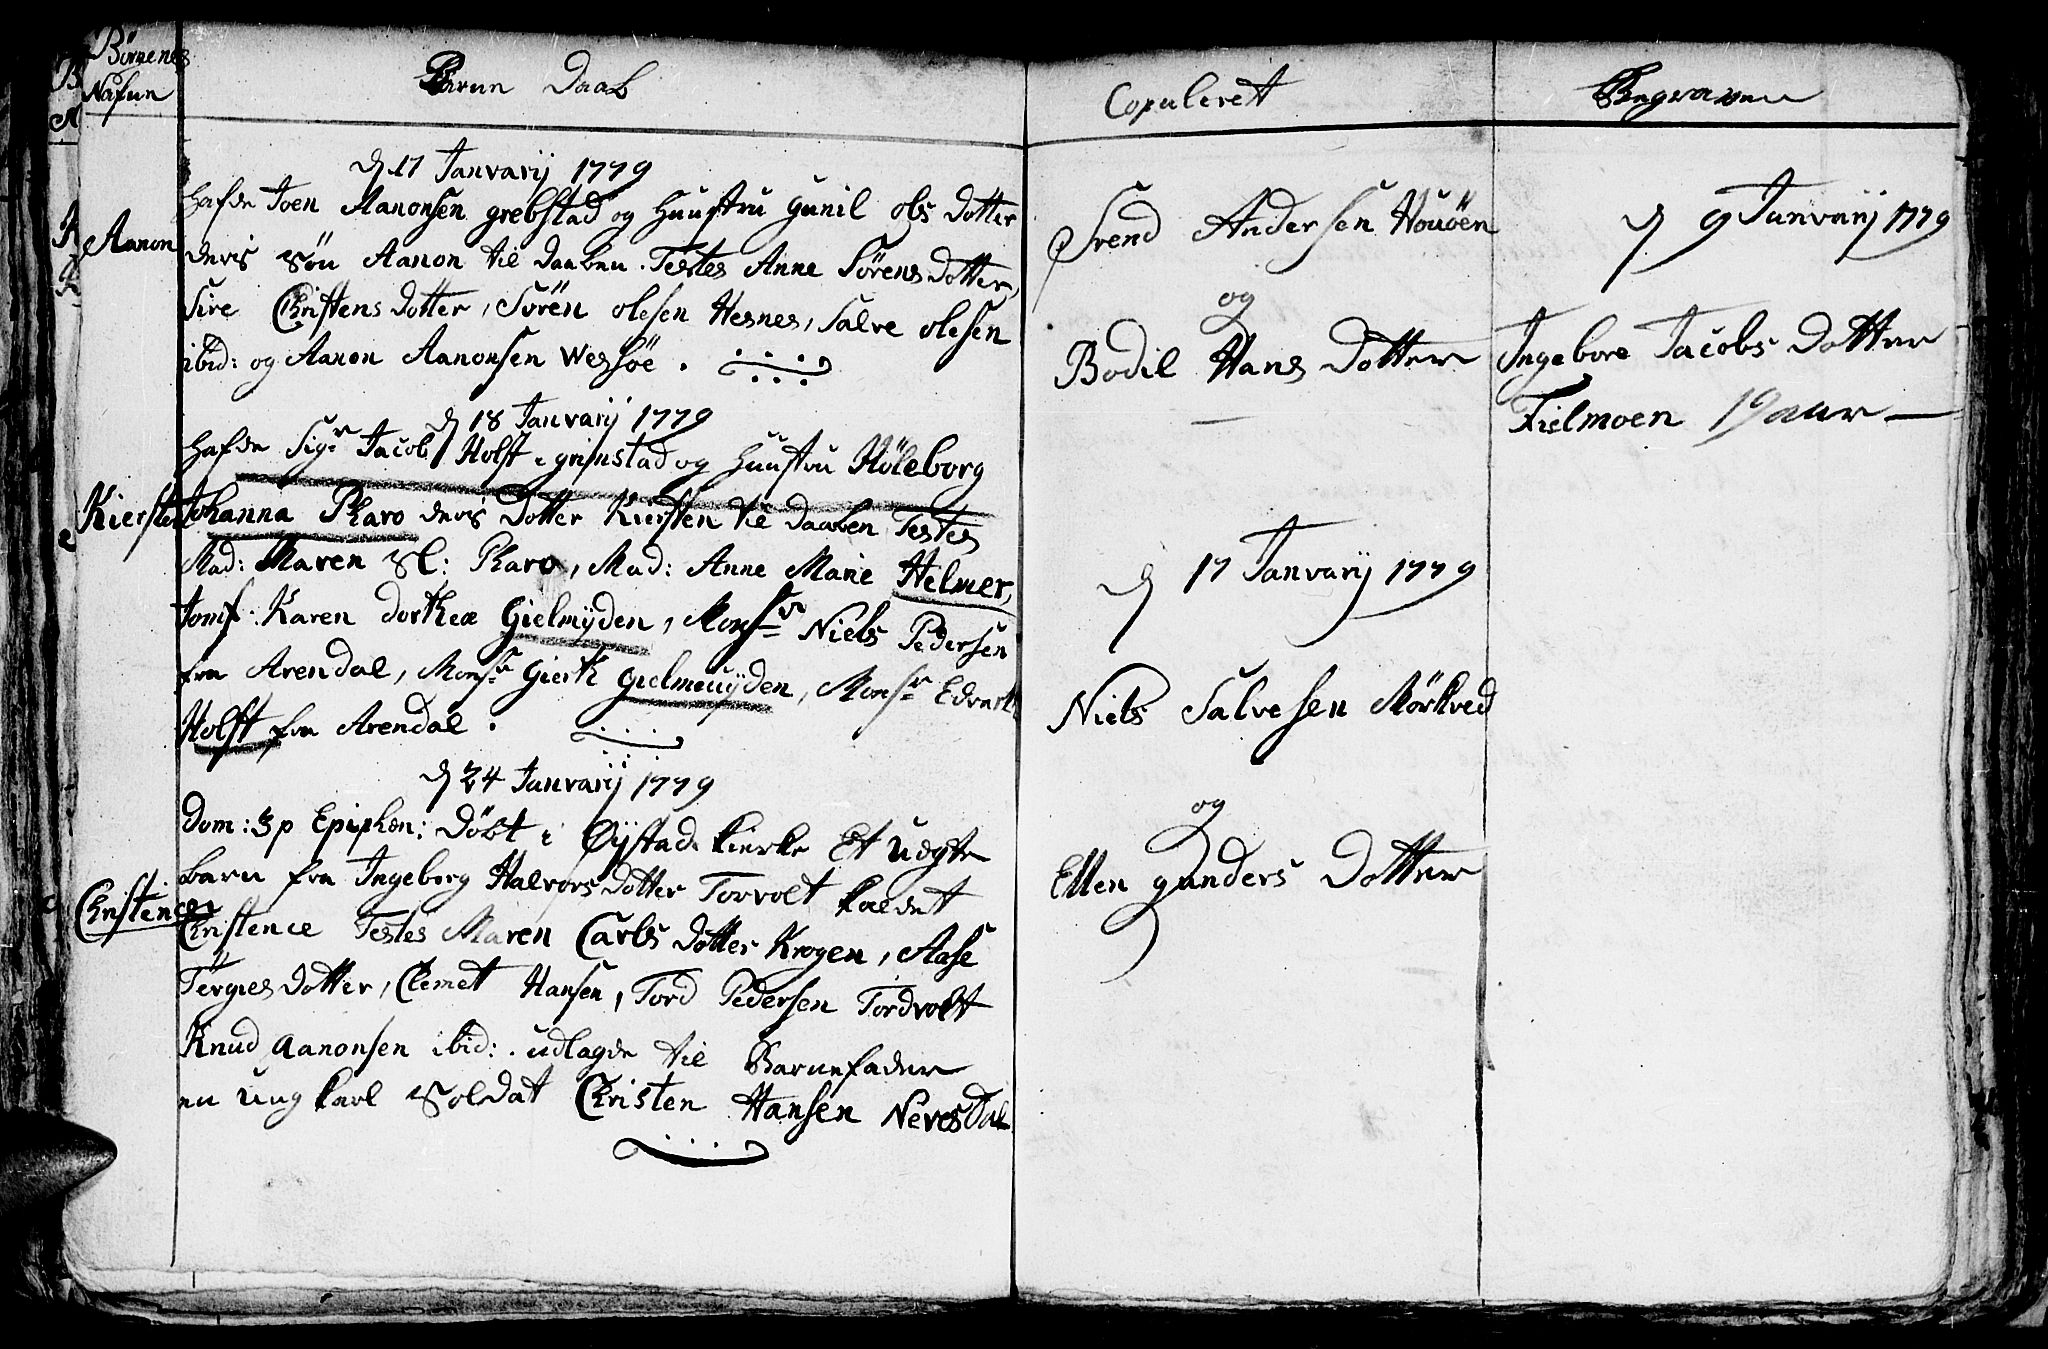 Börnenes
Nafne
Barne Daab
d 17 Janvarij 1779
Aanon
hafde Joen Aanonsen grebstad og Huustru Gunil ols Dotter
devis Sön Aanon til Daaben. Testes Anne Sörens Dotter,
Sire Christens Dotter, Sören Olesen Hesnes, Salve Olesen
ibid: og Aanon Aanonsen Wessöe.
d 18 Janvarij 1779
hafde Sigr Jacob Holst i grimstad og Huustru Höleborg
Kiersten
Johanna Pharo devis Dotter Kiersten til Daaben Testes
Mad: Maren Sl: Pharo, Mad: Anne Marie Helmer,
Jomf: Karen Dorthea Gielmÿden, Monsr Niels Pedersen
fra Arendal, Monsr Gierth Gielmeuÿden, Monsr Edvart
Holst fra Arendal.
d 24 Janvarij 1779
Dom: 3 p Epiphan: Döbt i Øÿstad kierke Et Uægte
barn fra Ingeborg Halvors Dotter Torvolt kaldet
Christence
Christence Testes Maren Carls Dotter Krogen, Aase
Tërgies Dotter, Clemet Hansen, Tord Pedersen Tordvolt
Knud Aanonsen ibid: udlagde til Barnefader
en ung karl Soldat Christen Hansen Nevesdal
Copuleret
Svend Andersen Houöen
og
Bodil Hans Dotter
d 17 Janvarij 1779
Niels Salvesen Mörkved
og
Ellen gunders Dotter
Begraven
d 9 Janvarij 1779
Ingebore Jacobs Dotter
Fielmoen 19 aar